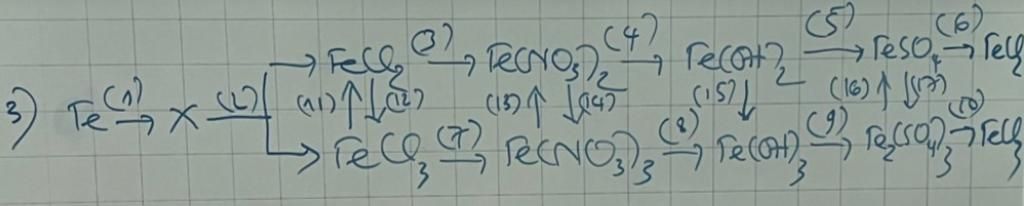 → FeCl₂ (3)→ Fe(NO₃)₂ (4)→ Fe(OH)₂ (5)→ FeSO₄ (6)→ FeCl₂
3) Fe (1)→ X (2)→ (11)↑ ↓(12) (13)↑ ↓(14) (15)↓ (16)↑ ↓(17)
→ FeCl₃ (7)→ Fe(NO₃)₃ (8)→ Fe(OH)₃ (9)→ Fe₂(SO₄)₃ (10)→ FeCl₃